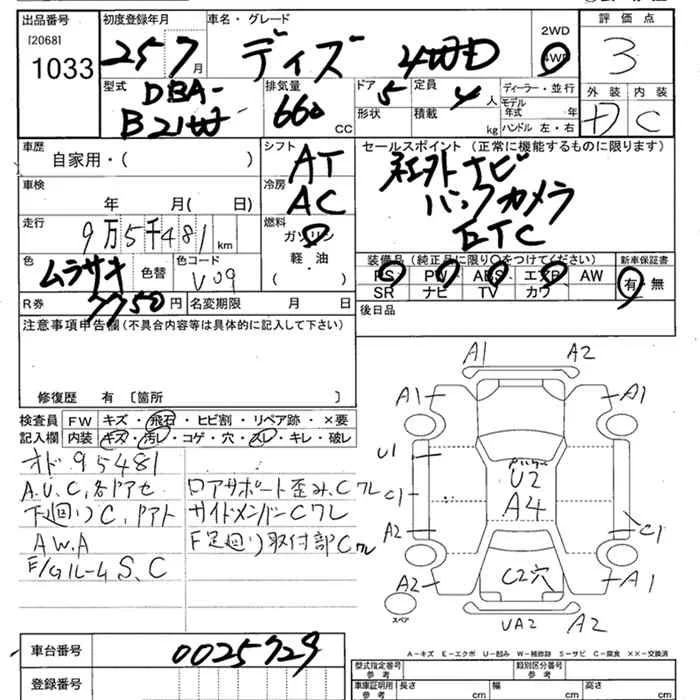 出品番号 初度登録年月 車名・グレード 2WD 評価点
[2068]
1033 25 7月 ディズ 4WD 4WD 3
型式 排気量 ドア 定員 ディーラー・並行 外装 内装
DBA- 660 CC 5 4人 モデル年式 年
B21W 形状 積載 kg ハンドル 左・右 C
車歴 シフト セールスポイント (正常に機能するものに限ります)
自家用・( ) AT 社外ナビ
車検 冷房 バックカメラ
年 月( 日) AC ETC
走行 燃料
9万5千481km ガソリン
色 色替 色コード 軽・油 装備品(純正品に限り○をつけてください) 新車保証書
ムラサキ V09 ( ) PS PW ABS エアB AW 有・無
SR ナビ TV カワ
R券 7750円 名変期限 月 日 後日品
注意事項申告欄(不具合内容等は具体的に記入して下さい)
修復歴 有 [箇所 ]
検査員 FW キズ・飛石・ヒビ割・リペア跡・×要
記入欄 内装 キズ・汚レ・コゲ・穴・スレ・キレ・破レ
オド95481
A.U.C,各ドアセ ロアサポート歪み,Cワレ
下廻りC,アト サイドメンバーCワレ
A.W.A F足廻り取付部Cワレ
F/Gルーム S、C
A1 A2
A1 A1
U1 U2
C1 A4 C1
A2
A2 C2穴 A1
スペア UA2 A2
A-キズ E-エクボ U-凹み W-補修跡 S-サビ C-腐食 ××-交換済
車台番号 0025729
登録番号
型式指定番号 参考 類別区分番号 参考
車庫証明用 参考 長さ cm 幅 cm 高さ cm